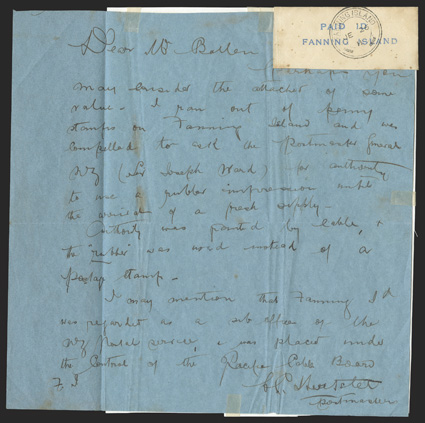 PAID 1D
FANNING ISLAND
FANNING ISLAND
Dear Mr
Perhaps you
may consider the attached of some
value - I ran out of penny
stamps on Fanning Island and was
compelled to ask the Postmaster General
NZ (Sir Joseph Ward) for authority
to use a rubber impression until
the arrival of a fresh supply -
Authority was granted by cable, +
the "rubber" was used instead of a
postage stamp -
I may mention that Fanning Id
was regarded as a sub office of the
NZ Postal service, & was placed under
the Control of the Pacific Cable Board
Postmaster